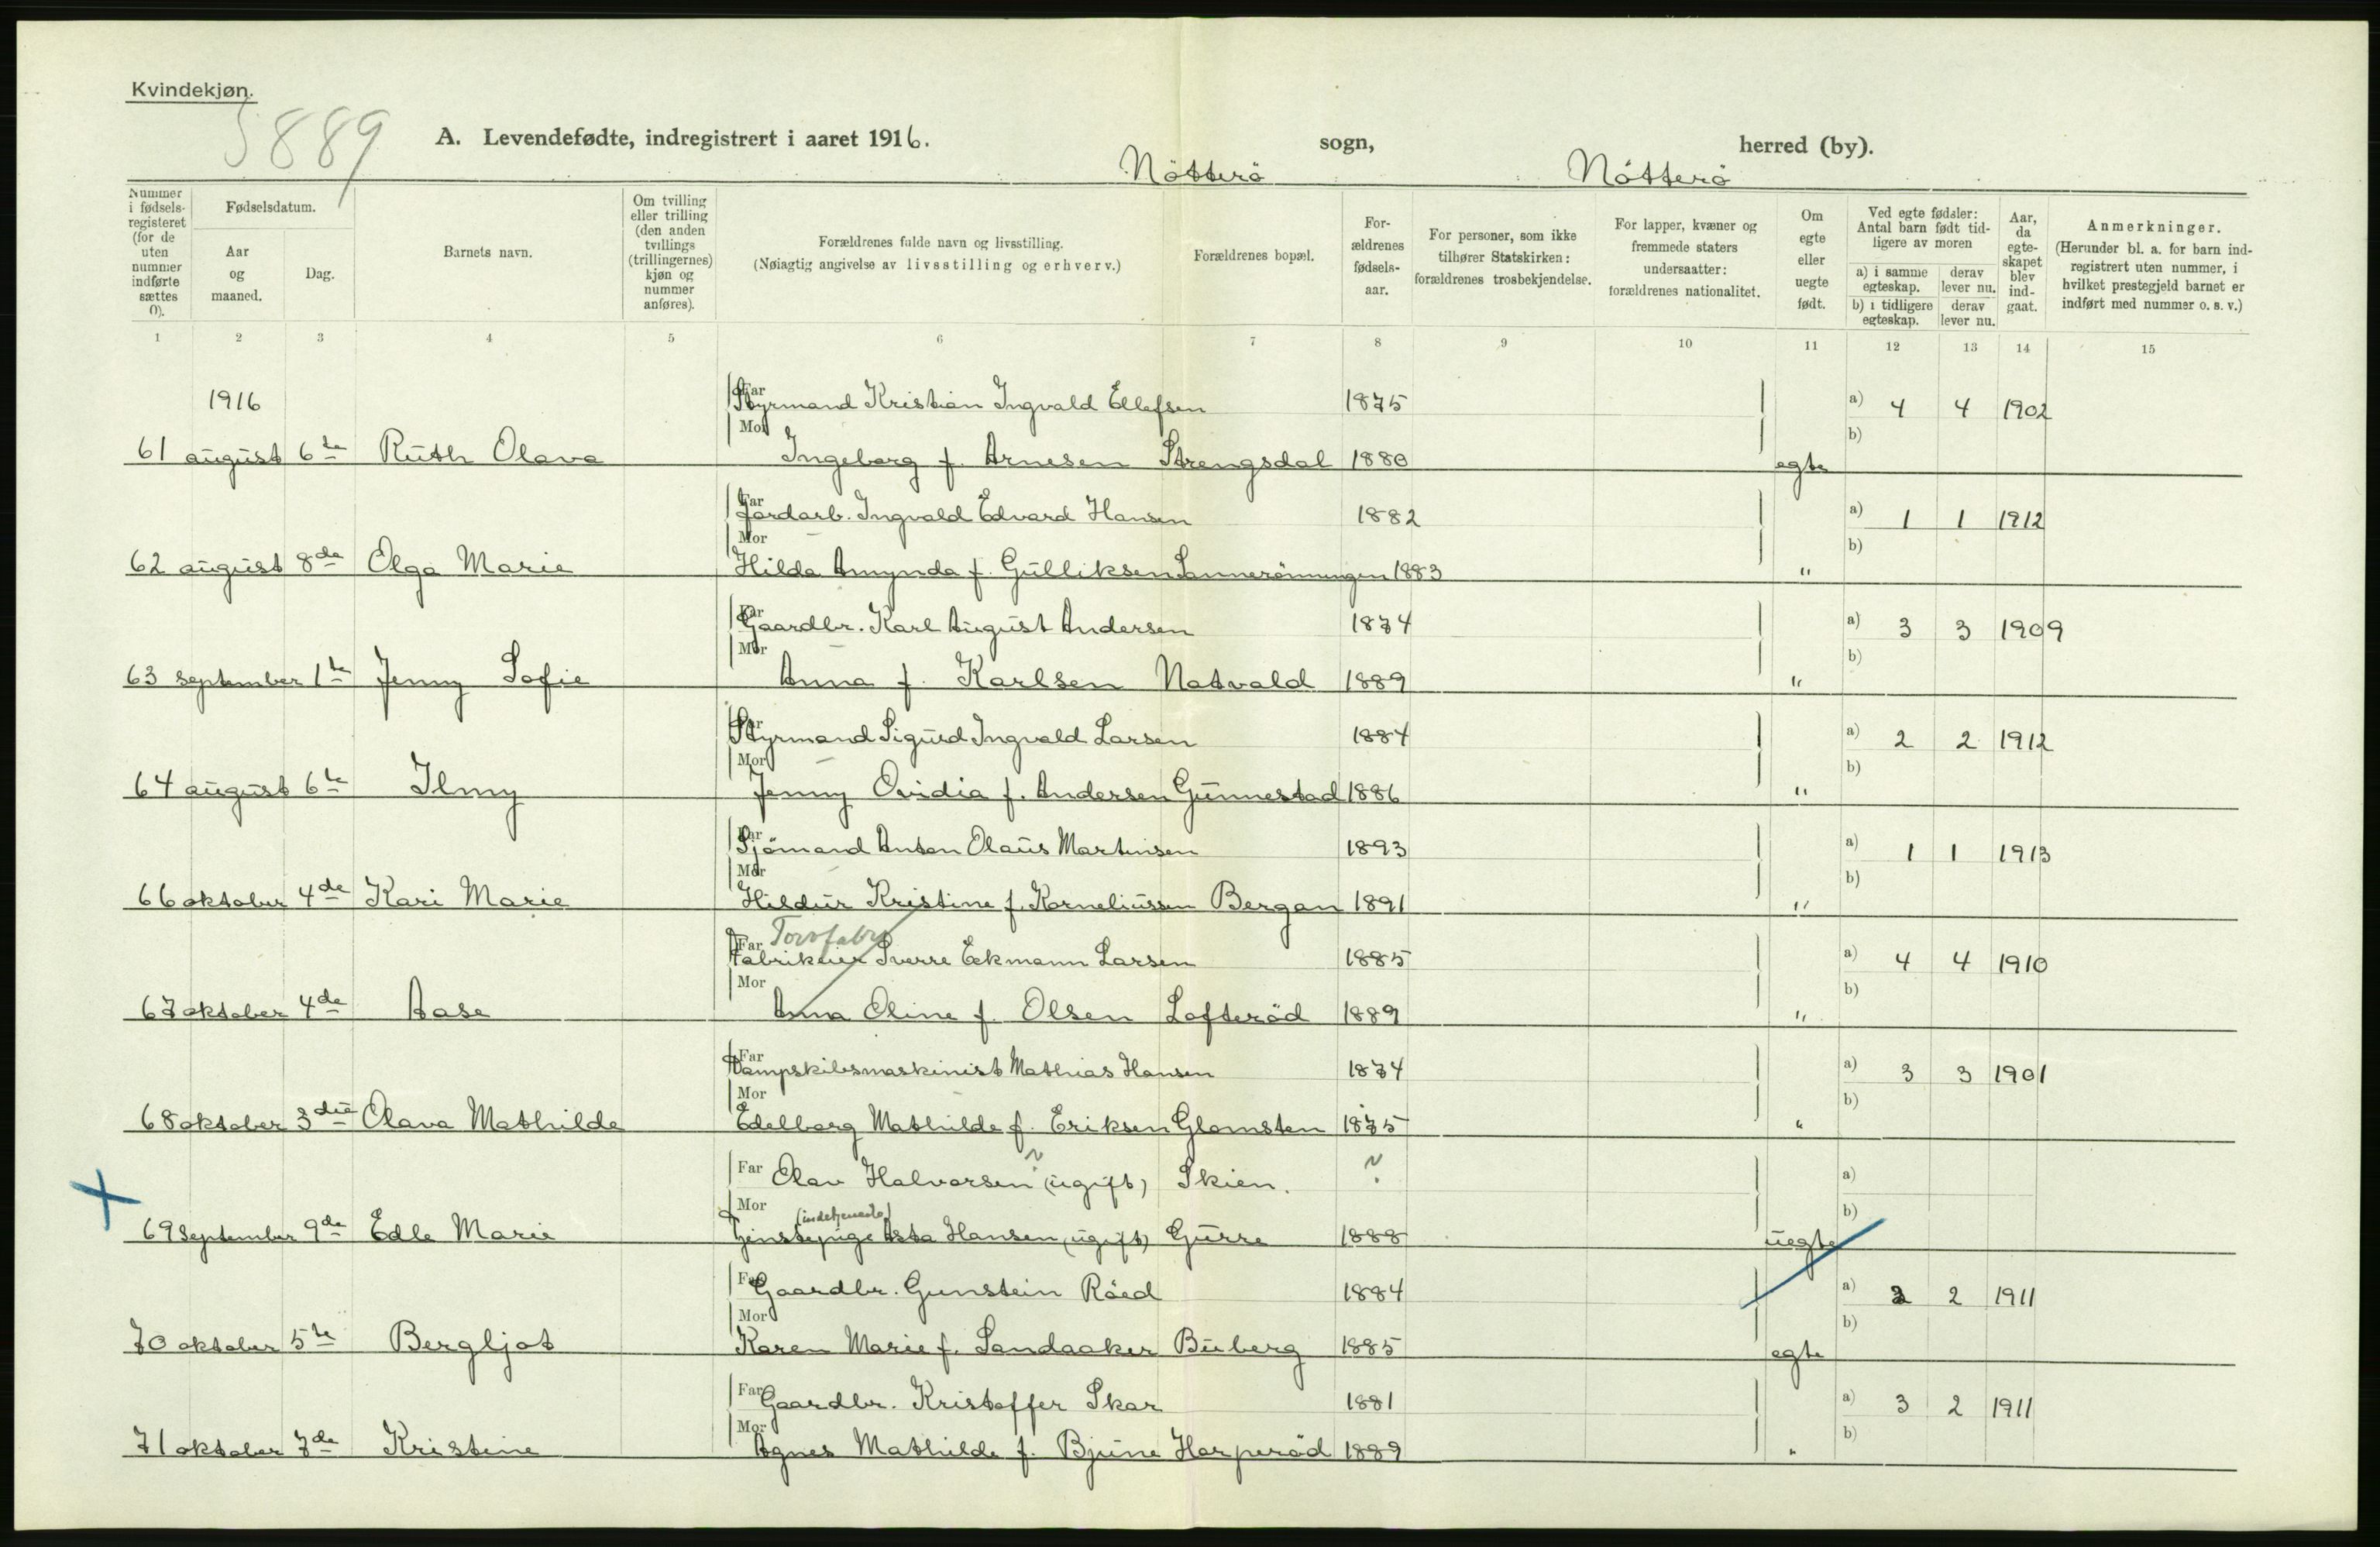 Kvindekjøn.
5889
A. Levendefødte, indregistrert i aaret 1916. Nötterö sogn, Nötterö herred (by).
Nummer i fødselsregisteret (for de uten nummer indførte sættes 0).
Fødselsdatum.
Aar og maaned.
Dag.
Barnets navn.
Om tvilling eller trilling (den anden tvillings (trillingernes) kjøn og nummer anføres).
Forældrenes fulde navn og livsstilling.
(Nøiagtig angivelse av livsstilling og erhverv.)
Forældrenes bopæl.
Forældrenes fødselsaar.
For personer, som ikke tilhører Statskirken: forældrenes trosbekjendelse.
For lapper, kvæner og fremmede staters undersaatter: forældrenes nationalitet.
Om egte eller uegte født.
Ved egte fødsler: Antal barn født tidligere av moren
a) i samme egteskap. derav lever nu.
b) i tidligere egteskap. derav lever nu.
Aar, da egteskapet blev indgaat.
Anmerkninger.
(Herunder bl. a. for barn indregistrert uten nummer, i hvilket prestegjeld barnet er indført med nummer o. s. v.)
1 2 3 4 5 6 7 8 9 10 11 12 13 14 15
1916 Far Styrmand Kristian Ingvald Ellefsen 1875 a) 4 4 1902
Mor b)
61 august 6te Ruth Olava Ingeborg f. Arnesen Strengsdal 1880 egte
Far Jordarb. Ingvald Edvard Hansen 1882 a) 1 1 1912
Mor b)
62 august 8de Olga Marie Hilda Amynda f. Gulliksen 1883 "
Far Gaardbr. Karl August Andersen 1874 a) 3 3 1909
Mor b)
63 september 1te Jenny Sofie Anna f. Karlsen Natvald 1889 "
Far Styrmand Sigurd Ingvald Larsen 1884 a) 2 2 1912
Mor b)
64 august 6te Ilmy Jenny Ovidia f. Andersen Gunnestad 1886 "
Far Sjömand Anton Olaus Martinsen 1893 a) 1 1 1913
Mor b)
66 oktober 4de Kari Marie Hildur Kristine f. Korneliussen Bergan 1891 "
Torvfabr
Far Fabrikeier Sverre Eekmann Larsen 1885 a) 4 4 1910
Mor b)
67 oktober 4de Aase Anna Oline f. Olsen Lofteröd 1889 "
Far Dampskibsmaskinist Mathias Hansen 1874 a) 3 3 1901
Mor b)
68 oktober 3die Olava Mathilde Edelborg Mathilde f. Eriksen Glomsten 1875 "
Far Olav Halvorsen ? (ugift) Skien. ? a)
Mor (indetjeneste) b)
69 september 9de Edle Marie Tjenstepige Asta Hansen (ugift) Gurre 1888 uegte
Far Gaardbr. Gunstein Röed 1884 a) 2 2 1911
Mor b)
70 oktober 5te Bergljot Karen Marie f. Sandaaker Buberg 1885 egte
Far Gaardbr. Kristoffer Skar 1881 a) 3 2 1911
Mor b)
71 oktober 7de Kristine Agnes Mathilde f. Bjune Harperöd 1889 "